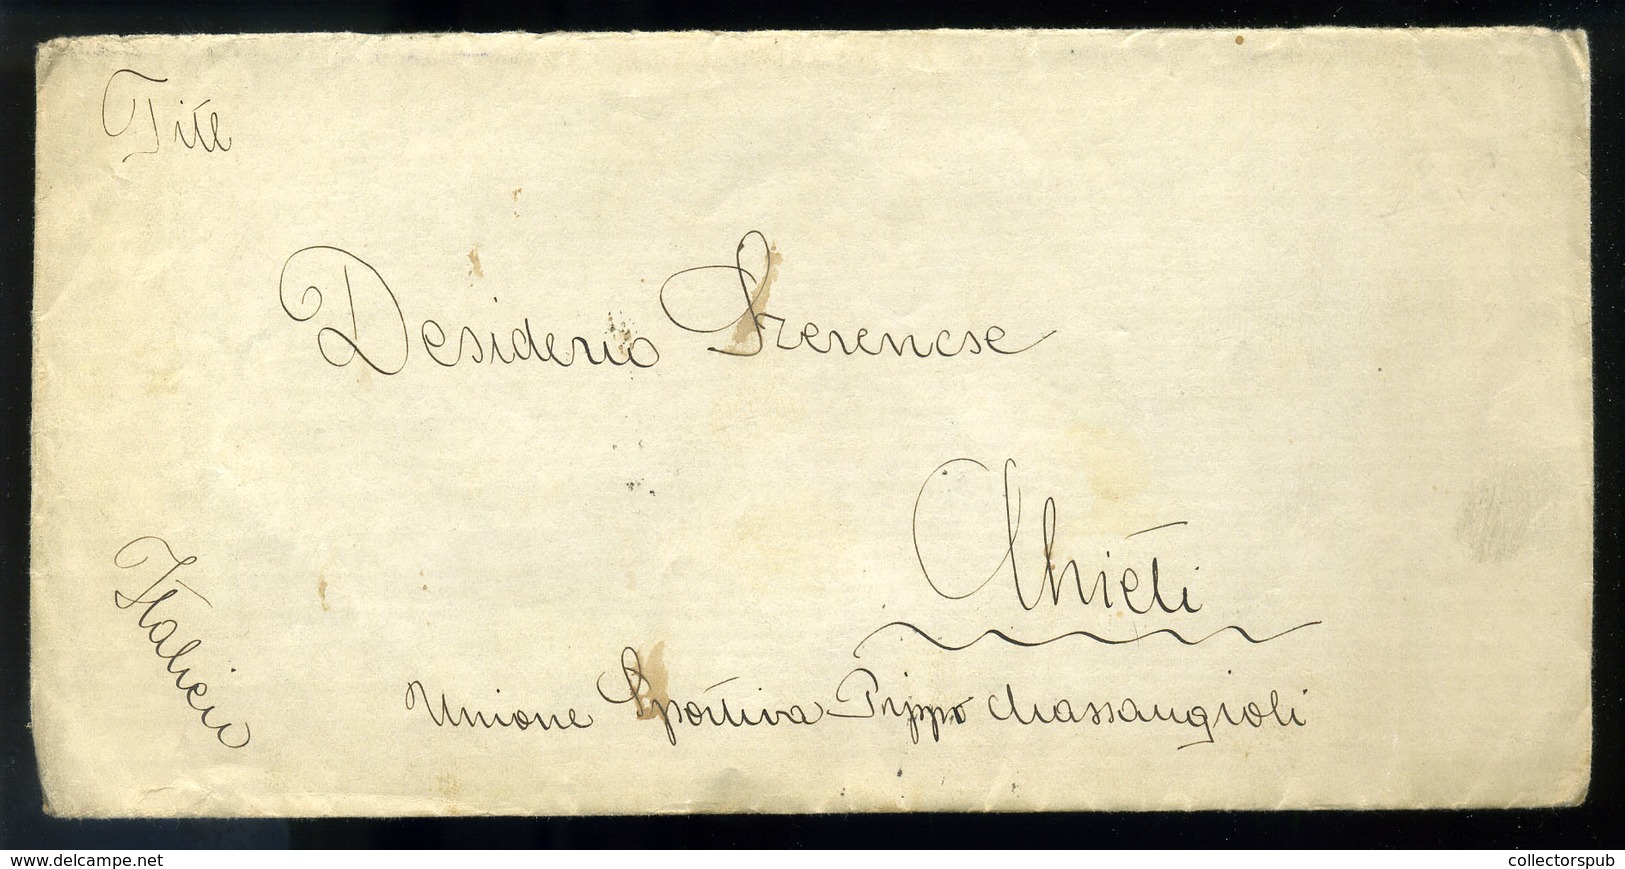 Titl
Desiderio Ferencse
Chieti
Italien
Unione Sportiva Pippo Massangioli
www.delcampe.net
collectorspub